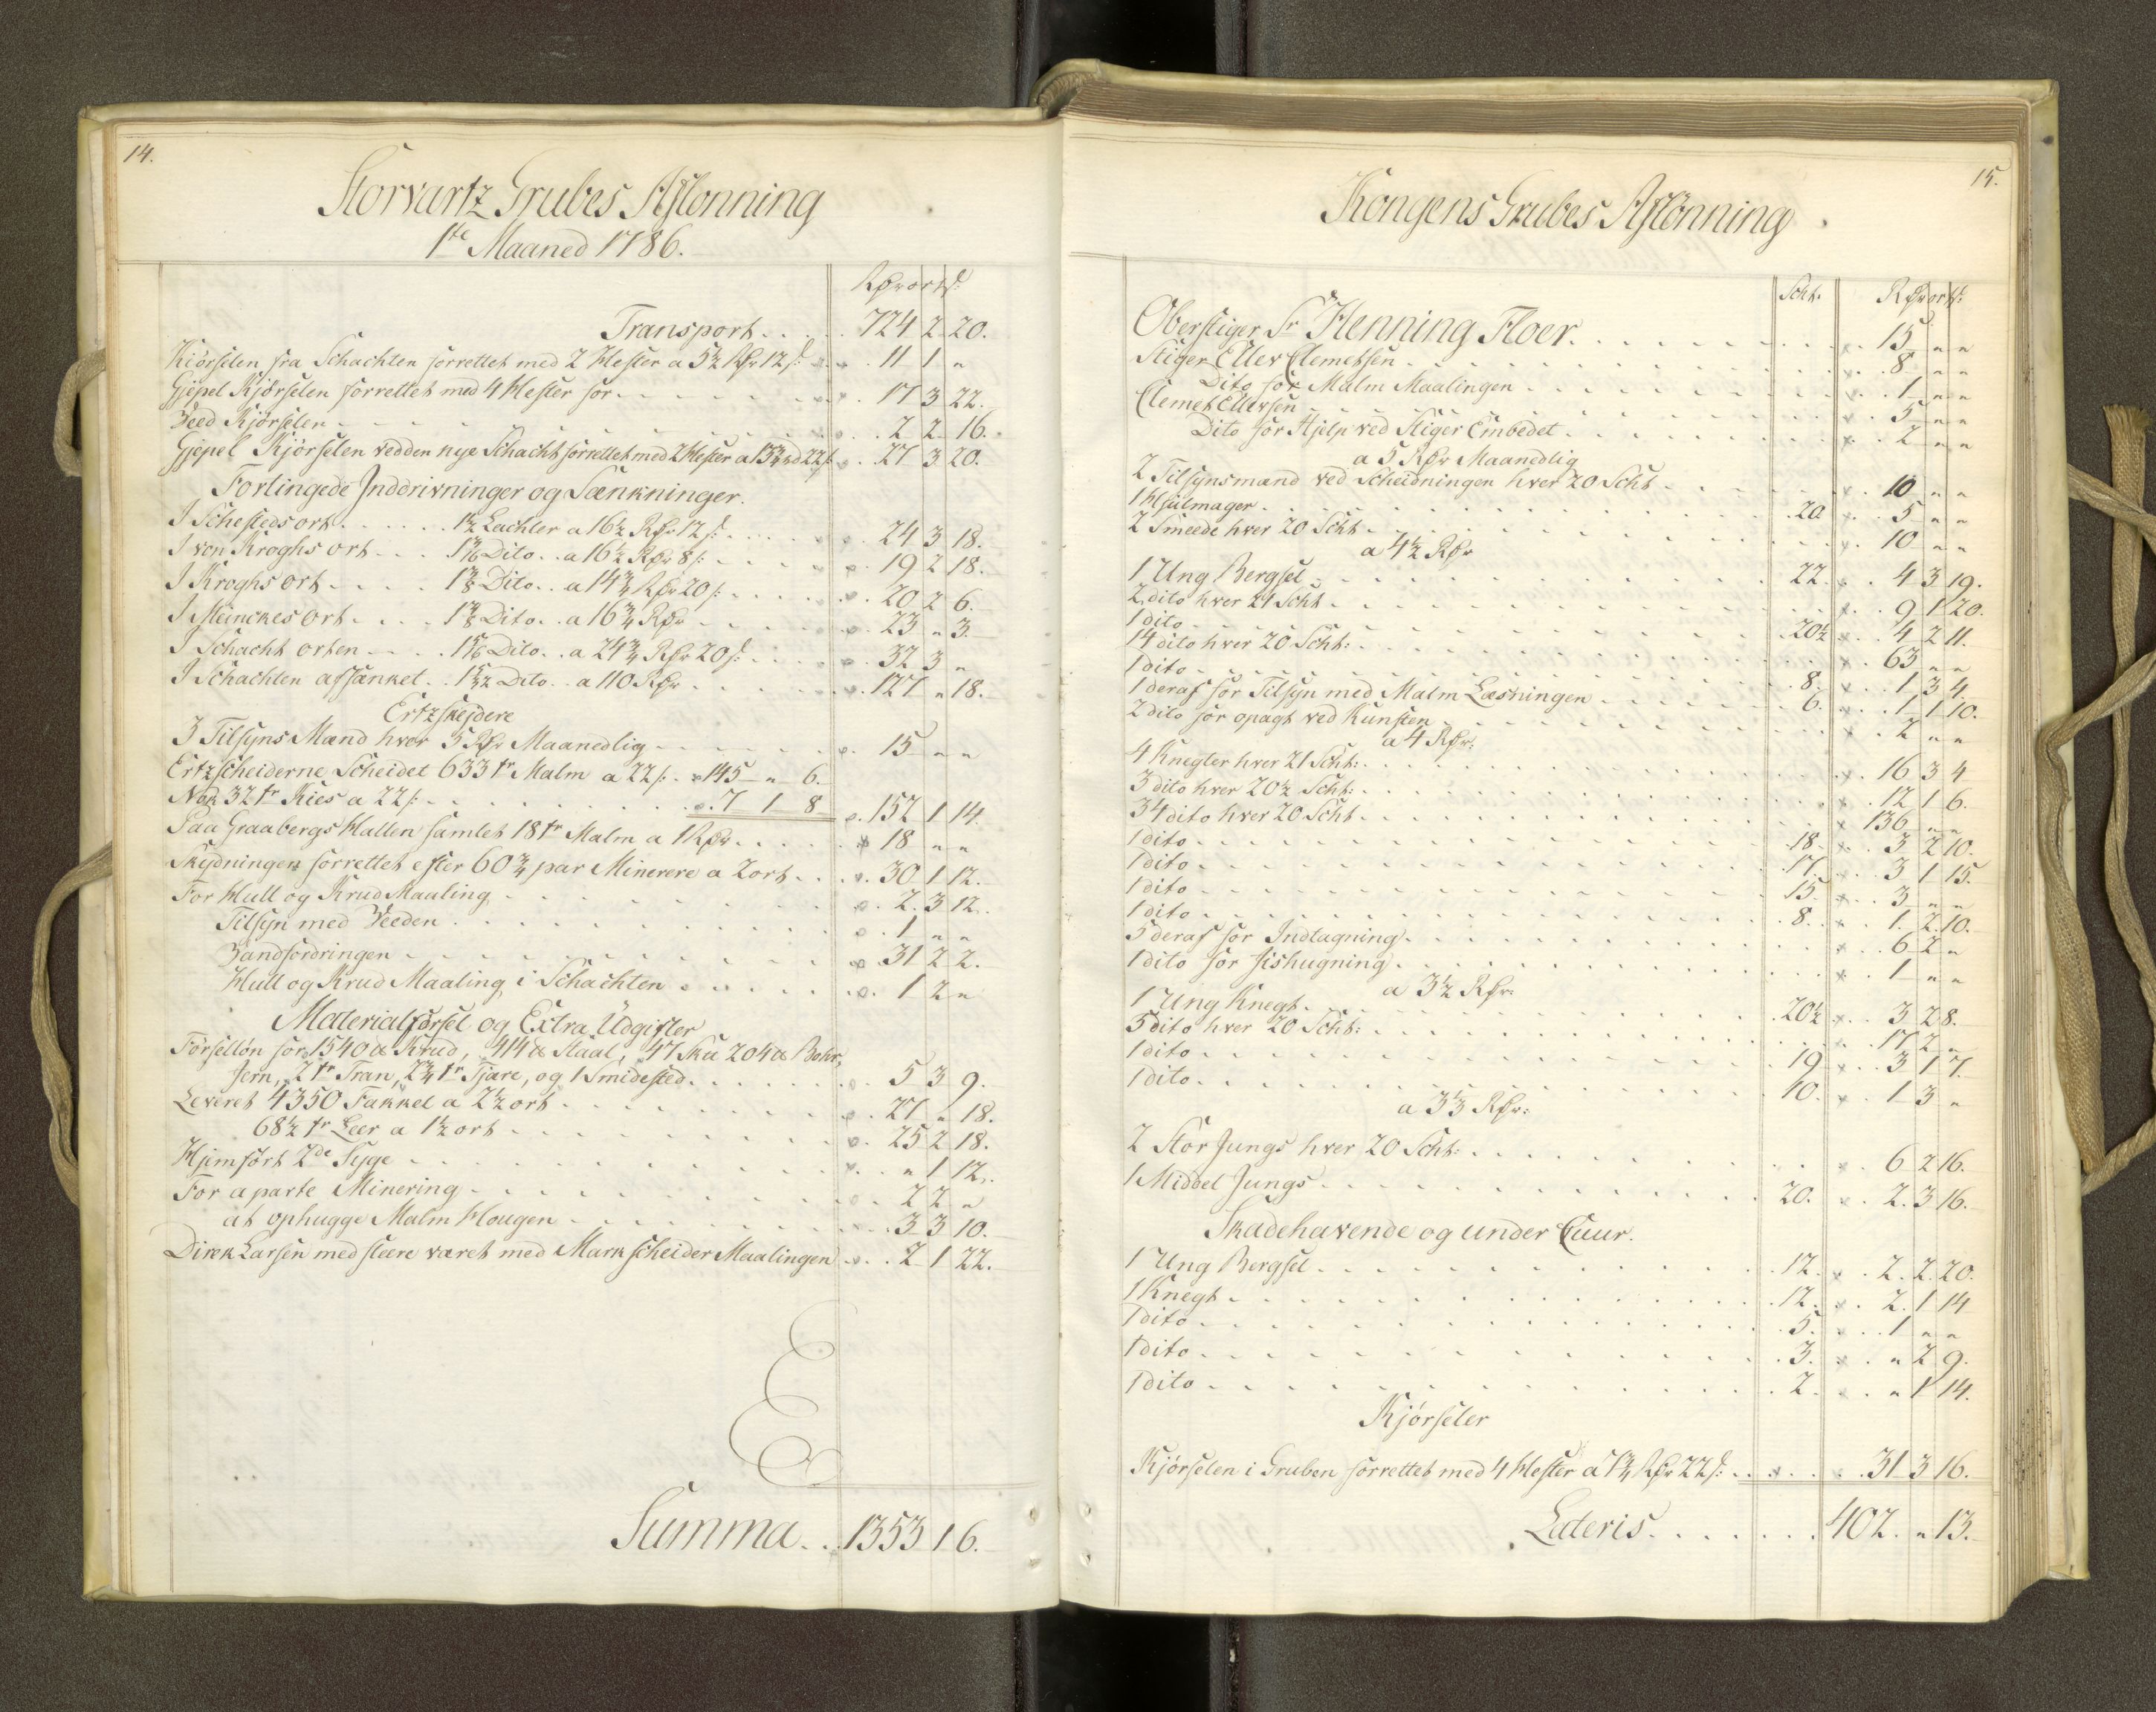 14.
Storvartz Grubes Aflonning
1te Maaned 1786.
Rdr ort s:
Transport . . . . . 724 2 20.
Kiörselen fra Schachten forrettet med 2 Hester a 5½ Rdr 12 s: . . 11 1 "
Gjepel Kjörselen forrettet med 4 Hester for . . . . 17 3 22.
Veed Kjørselen . . . . 2 2 16.
Gjepel Kjörselen ved den nye Schacht forrettet med 2 Hester a 13¾ rd 22 s: . 27 3 20.
Fortingede Inddrivninger og Sænkninger.
I Schesteds ort . . . . . 1½ Lachter a 16½ Rdr 12 s: . . . . 24 3 18.
I von Kroghs ort . . . 1 3/16 Dito . . a 16½ Rdr 8 s: . . . . 19 2 18.
I Kroghs ort . . . . 1⅜ Dito . . a 14¾ Rdr 20 s: . . . . 20 2 6.
I Münckes ort . . . . 1⅜ Dito . . a 16¾ Rdr . . . . 23 " 3.
I Schacht orten . . . . 1 5/16 Dito . . a 24¾ Rdr 20 s: . . . . 32 3 "
I Schachten afsänket . . 1 5/32 Dito . . a 110 Rdr . . . . 127 " 18.
Ertzskejdere
3 Tilsyns Mænd hver 5 Rdr Maanedlig . . . . 15 " "
Ertzscheiderne Scheidet 633 tr Malm a 22 s: . 145 " 6.
Nok 32 tr Kies a 22 s: . . . . 7 1 8 . 152 1 14.
Paa Graabergs Hallen samlet 18 tr Malm a 1 Rdr . . . . 18 " "
Skydningen forrettet efter 60¾ par Minerere a 2 ort . . . 30 1 12.
For Hull og Krud Maaling . . . . 2 3 12.
Tilsyn med Veeden . . . . 1 " "
Vandfordringen . . . . 31 2 2.
Hull og Krud Maaling i Schachten . . . . 1 2 "
Materialførsel og Extra Udgifter
Förselløn for 1540 ℔ Krud, 414 ℔ Staal, 47 Sk℔ 204 ℔ Bohr,
Jern, 2 tr Tran, 2¾ tr Tjære, og 1 Smidested . . . . 5 3 9.
Leveret 4350 Fakkel a 2½ ort . . . . 27 " 18.
68½ tr Leer a 1½ ort . . . . 25 2 18.
Hjemfört 2de Syge . . . . " 1 12.
For a parte Minering . . . . 2 2 "
at ophugge Malm Hougen . . . . 3 3 10.
Dirck Larsen med fleere været med Markscheider Maalingen . . . 2 1 22.
Summa . . 1353 1 6.
15.
Kongens Grubes Aflönning
Scht: Rdr ort s:
Oberstiger Sr Henning Floer . . . . 15 " "
Stiger Ellev Clemetsen . . . . 8 " "
Dito for Malm Maalingen . . . . 1 " "
Clemet Ellevsen . . . . 5 " "
Dito for Hjelp ved Stiger Embedet . . . . 2 " "
a 5 Rdr Maanedlig
2 Tilsynsmænd ved Scheidningen hver 20 Scht . . . . 10 " "
1 Hjulmager . . . . 20 . . 5 " "
2 Smeede hver 20 Scht . . . . 10 " "
a 4½ Rdr
1 Ung Bergsel . . . . 22 . . 4 3 19.
2 dito hver 21 Scht . . . . 9 1 20.
1 dito . . . . 20½ . . 4 2 11.
14 dito hver 20 Scht: . . . . 63 " "
1 dito . . . . 8. . . 1 3 4.
1 deraf for Tilsyn med Malm Læsningen . . . . 6. . . 1 1 10.
2 dito for opagt ved Kunsten . . . . 2 " "
a 4 Rdr:
4 Knegter hver 21 Scht: . . . . 16 3 4
3 dito hver 20½ Scht: . . . . 12 1 6.
34 dito hver 20 Scht . . . . 136 " "
1 dito . . . . 18. . . 3 2 10.
1 dito . . . . 17. . . 3 1 15.
1 dito . . . . 15. . . 3 " "
1 dito . . . . 8. . . 1 2 10.
5 deraf for Indtagning . . . . 6 2 "
1 dito for Iishugning . . . . 1 " "
a 3½ Rdr:
1 Ung Knegt . . . . 20½ . . 3 2 8.
5 dito hver 20 Scht: . . . . 17 2 "
1 dito . . . . 19 . . 3 1 7.
1 dito . . . . 10. . . 1 3 "
a 3⅓ Rdr:
2 Stor Jungs hver 20 Scht: . . . . 6 2 16.
1 Middel Jungs . . . . 20. . . 2 3 16.
Skadehavende og under Cuur.
1 Ung Bergsel . . . . 12. . . 2 2 20.
1 Knegt . . . . 12. . . 2 1 14
1 dito . . . . 5. . . 1 " "
1 dito . . . . 3. . . " 2 9.
1 dito . . . . 2. . . " 1 14.
Kjørseler
Kjørselen i Gruben forrettet med 4 Hester a 7¾ Rdr 22 s: . . . . 31 3 16.
Lateris . . . . . . . 402. " 13.